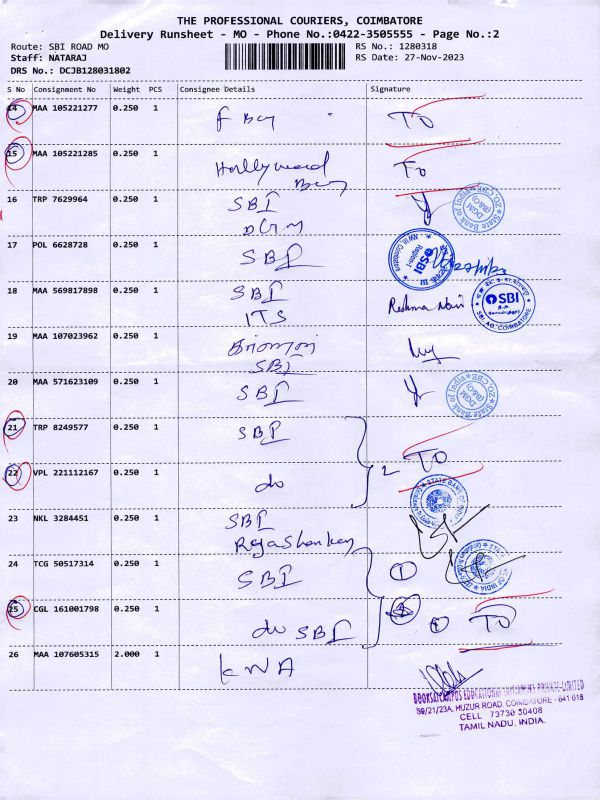 THE PROFESSIONAL COURIERS, COIMBATORE
Delivery Runsheet - MO - Phone No.:0422-3505555 - Page No.:2
Route: SBI ROAD MO
RS No.: 1280318
Staff: NATARAJ
RS Date: 27-Nov-2023
DRS No.: DCJB128031802
S No Consignment No Weight PCS Consignee Details Signature
14 MAA 105221277 0.250 1 TO
15 MAA 105221285 0.250 1 Hollywood TO
16 TRP 7629964 0.250 1 SBI
DGM
State Bank of
DGM
(B&O)
17 POL 6628728 0.250 1 SBI
SBI
18 MAA 569817898 0.250 1 SBI
ITS
Reshma Nair
SBI
SBI AO, COIMBATORE
19 MAA 107023962 0.250 1
SBI
20 MAA 571623109 0.250 1 SBI
DGM
(B&O)
21 TRP 8249577 0.250 1 SBI
2 TO
22 VPL 221112167 0.250 1 do
STATE BANK OF INDIA
23 NKL 3284451 0.250 1 SBI
Rajashankar
24 TCG 50517314 0.250 1 SBI 1
25 CGL 161001798 0.250 1 do SBI TO
26 MAA 107605315 2.000 1 KNA
59/21/23A, HUZUR ROAD, COIMBATORE - 641 018
CELL 73730 30408
TAMIL NADU, INDIA.